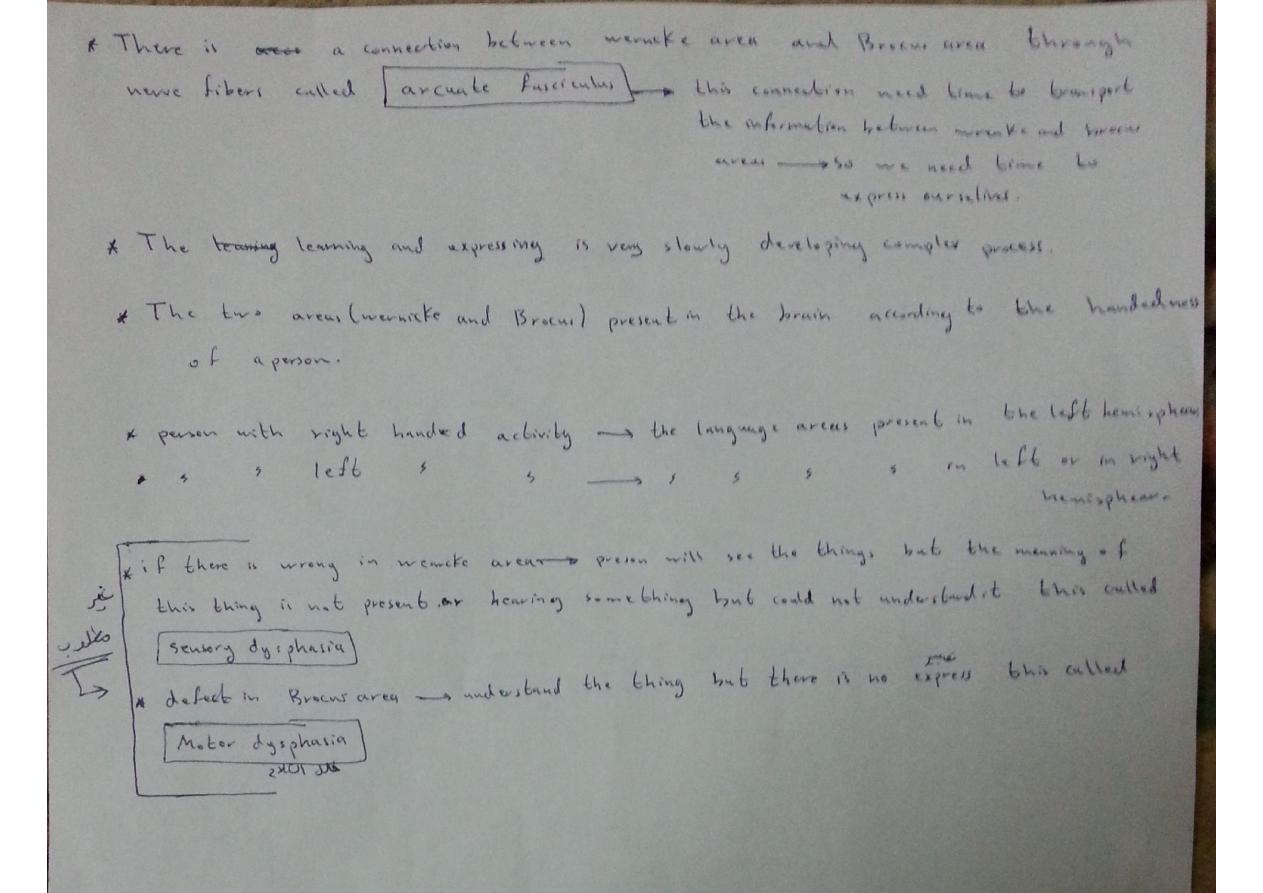 * There is a connection between wernicke area and Brocus area through
nerve fibers called arcuate fasciculus → this connection need time to transport
the information between wrenke and brocus
areas → so we need time to
express ourselves.
* The learning and expressing is very slowly developing complex process.
* The two areas (wernicke and Brocus) present in the brain according to the handedness
of a person.
* person with right handed activity → the language areas present in the left hemisphear
* 〃 〃 left 〃 〃 → 〃 〃 〃 〃 in left or in right
hemisphear.
* if there is wrong in wernicke area → preson will see the things but the meaning of
this thing is not present or hearing something but could not understand it this called
sensory dysphasia
غير
مطلوب
* defect in Brocus area → understand the thing but there is no express this called
Motor dysphasia